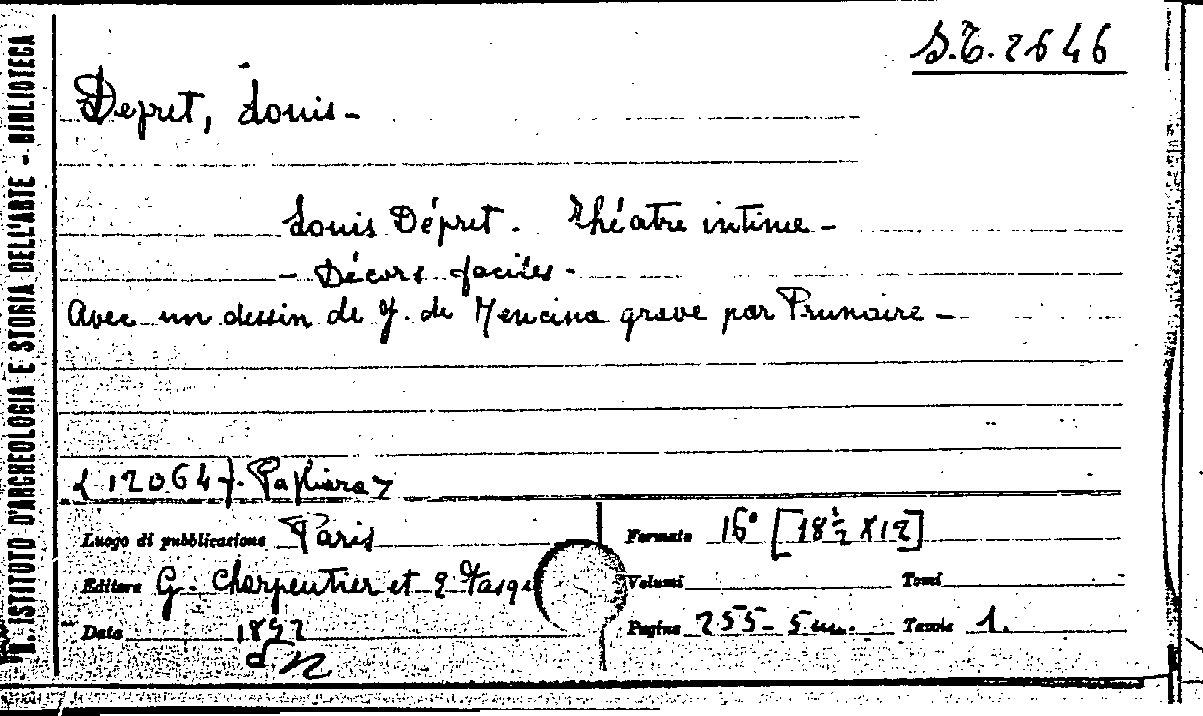 R. ISTITUTO D'ARCHEOLOGIA E STORIA DELL'ARTE - BIBLIOTECA
S.T. 2646
Depret, Louis-
Louis Dépret. Théatre intime-
- Décors faciles-
Avec un dessin de J. de gravé par Prunaire-
12064
Luogo di pubblicazione Paris
Formato 16° [18½ x 12]
Editore G. Charpentier et E. Fasqu
Volumi Tomi
Data 1892
Pagine 255- 5 nn. Tavole 1.